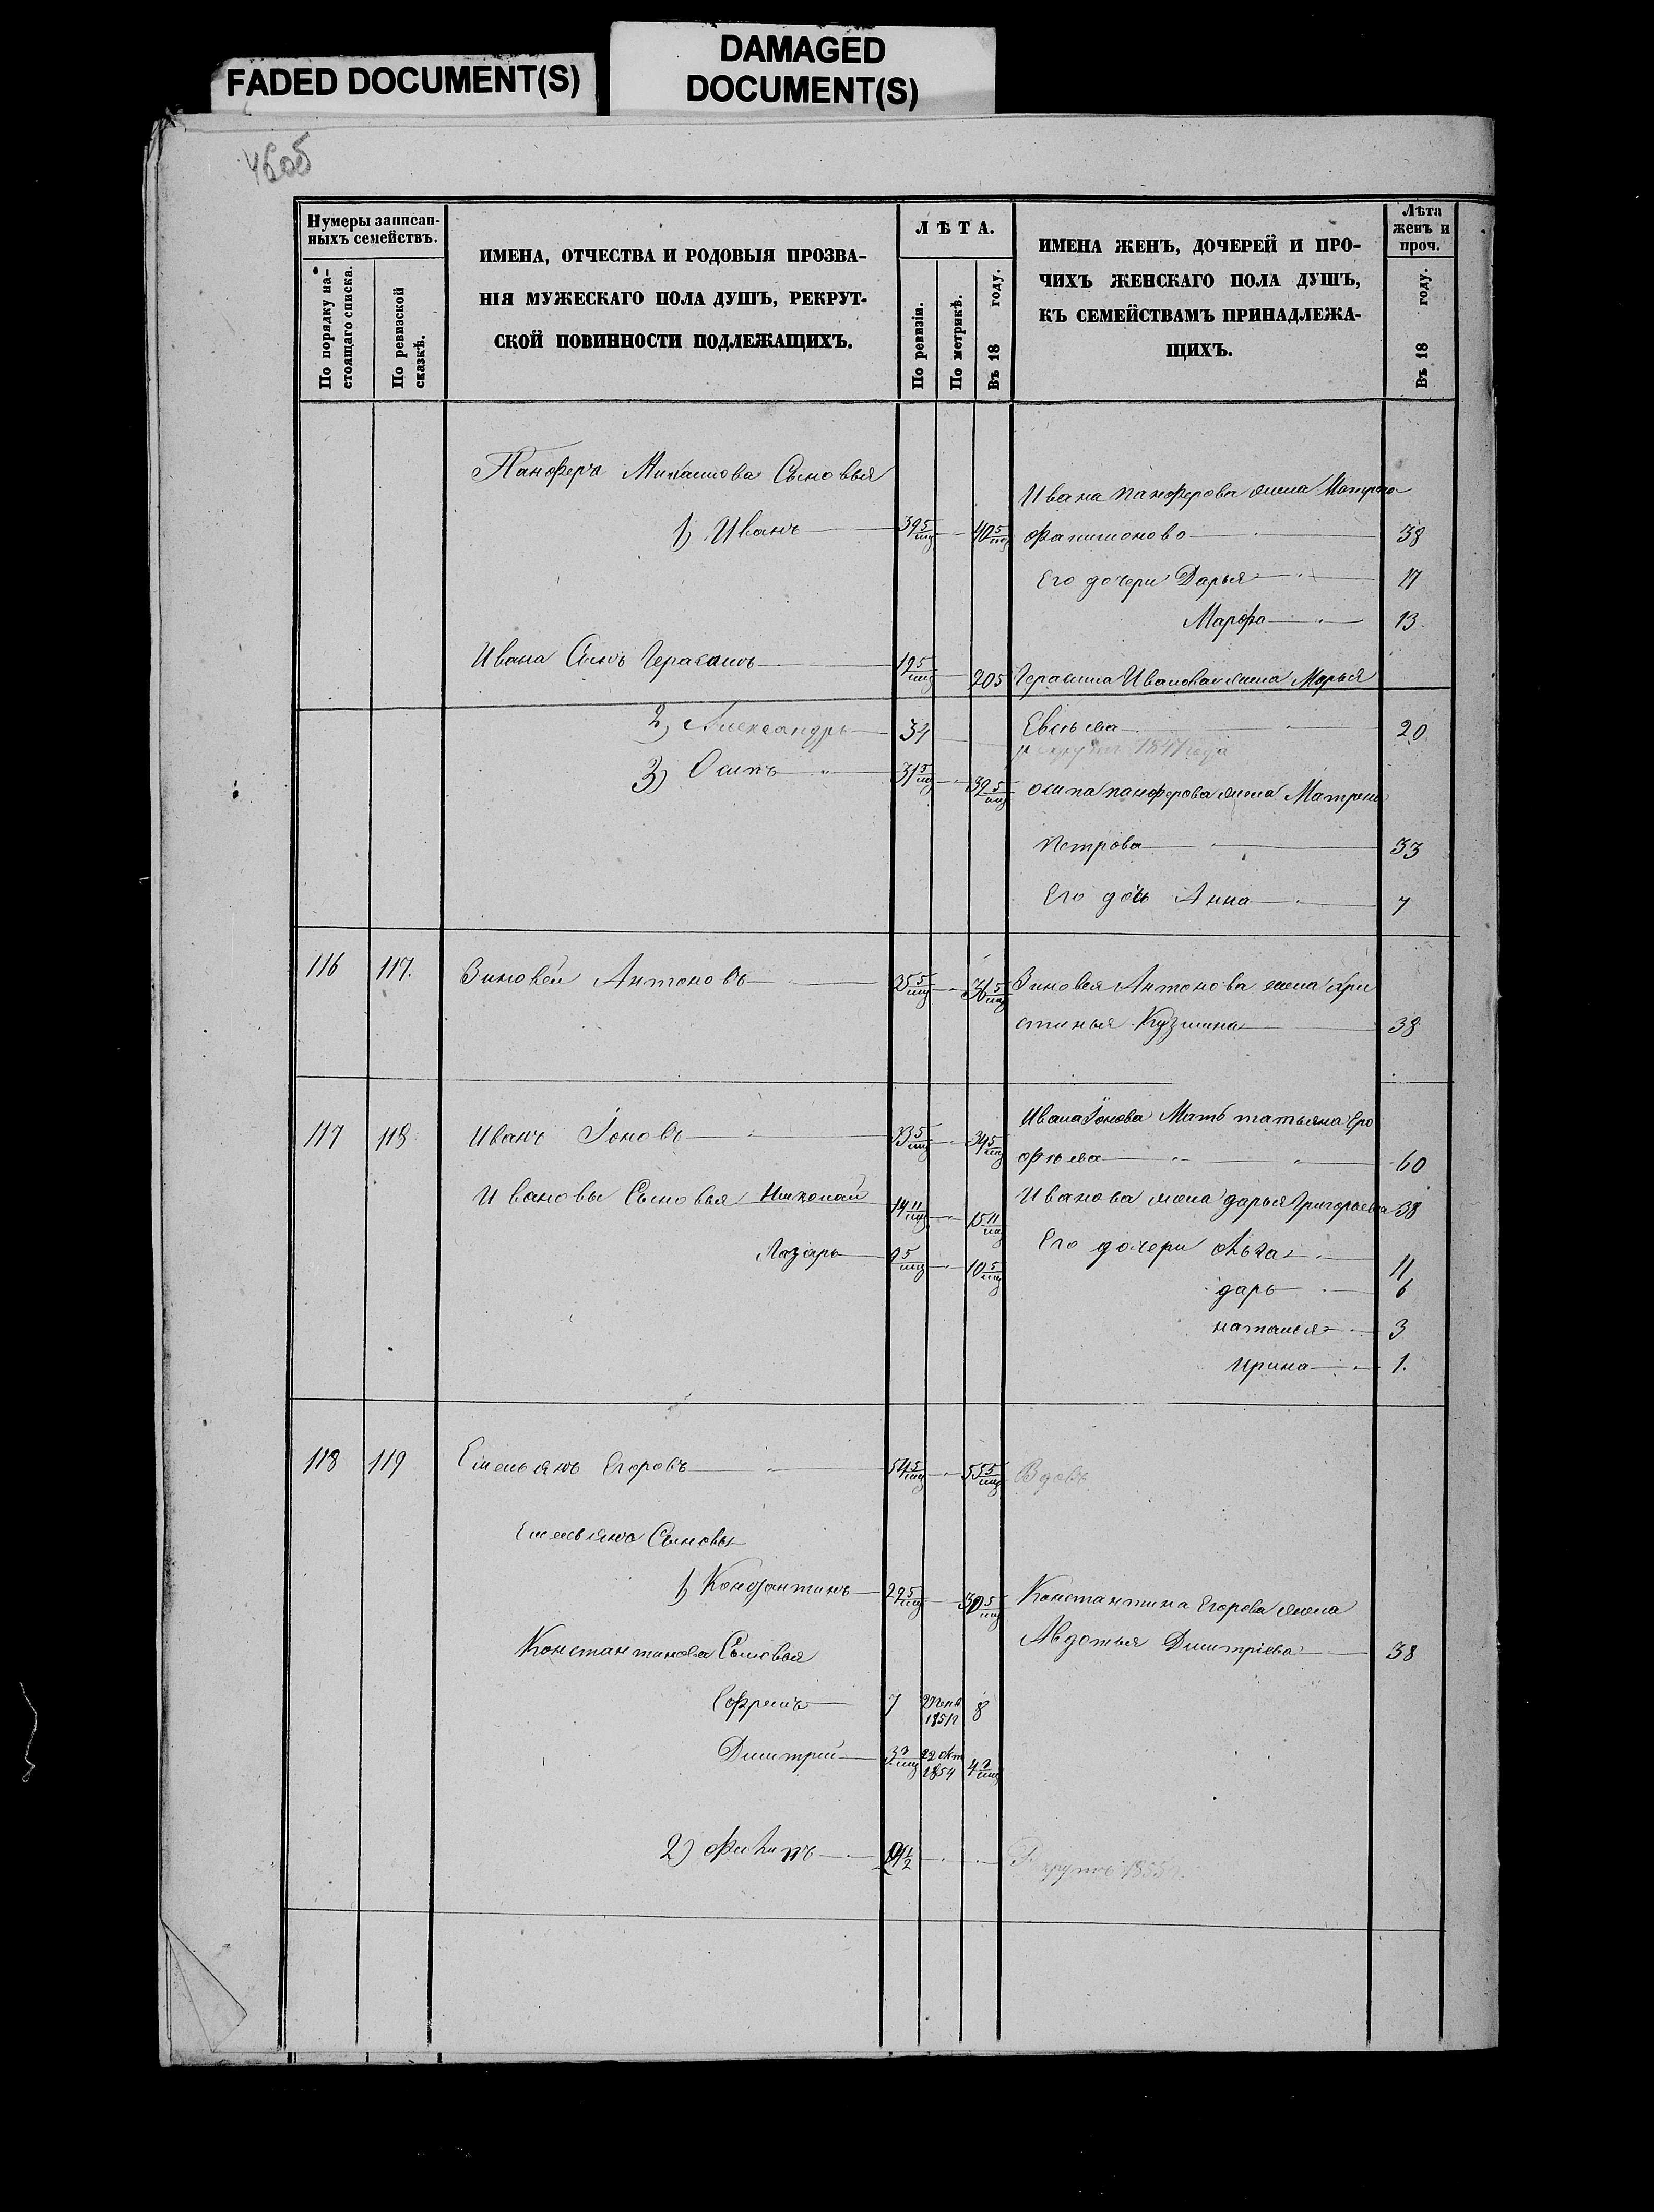 FADED DOCUMENT(S)
DAMAGED
DOCUMENT(S)
460б
Нумеры записан-
ныхъ семействъ.
По порядку на-
стоящаго списка.
По ревизской
сказкѣ.
ИМЕНА, ОТЧЕСТВА И РОДОВЫЯ ПРОЗВА-
НІЯ МУЖЕСКАГО ПОЛА ДУШЪ, РЕКРУТ-
СКОЙ ПОВИННОСТИ ПОДЛЕЖАЩИХЪ.
ЛѢТА.
По ревизіи.
По метрикѣ.
Въ 18 году.
ИМЕНА ЖЕНЪ, ДОЧЕРЕЙ И ПРО-
ЧИХЪ ЖЕНСКАГО ПОЛА ДУШЪ,
КЪ СЕМЕЙСТВАМЪ ПРИНАДЛЕЖА-
ЩИХЪ.
Лѣта
женъ и
проч.
Въ 18 году.
Панфера Сыновья
Ивана Панферова жена Матрона
1) Иванъ 39 5/мц 40 5/мц 38
Его дочери Дарья 17
Марфа 13
Ивана Сынъ Герасимъ 19 5/мц 20 5 Герасима Иванова жена Марья
2) Александръ 34 Евсѣева 20
1847 года
3) Осипъ 31 5/мц 32 5/мц осипа панферова жена Матрена
Петрова 33
Его дочь Анна 7
116 117. Зиновей Антоновъ 35 5/мц 36 5/мц Зиновея Антонова жена Хри
стинья Кузмина 38
117 118 Иванъ Іоновъ 33 5/мц 34 5/мц Ивана Іонова Мать татьяна Еро
офѣева 60
Ивановы Сыновья Николай 14 11/мц 15 11/мц Иванова жена дарья Григорьева 38
Лазарь 9 5/мц 10 5/мц Его дочери Ольга 11
дарь 6
наталья 3
Ирина 1.
118 119 Емельянъ Егоровъ 54 5/мц 55 5/мц Вдовъ
Емельяна Сыновья
1) Константинъ 29 5/мц 30 5/мц Константина Егорова жена
Авдотья Дмитріева 38
Константинова Сыновья
Ефремъ 7 1851 8
Дмитрій 3 3/мц 22 окт 1854 4 3/мц
2) Филипъ 1/2 Рекрутъ 1855